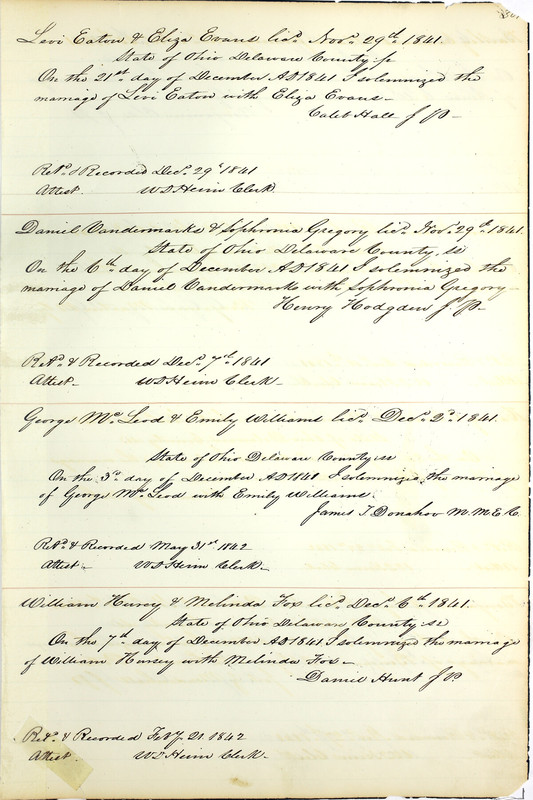 Levi Eaton & Eliza Evans lic. Nov. 29th 1841.
State of Ohio Delaware County ss
On the 21st day of December AD 1841 I solemnized the
marriage of Levi Eaton with Eliza Evans
Caleb Hall J P
Ret. & Recorded Dec. 29th 1841
Attest W D Heim Clerk
Daniel Vandermarke & Sophronia Gregory lic. Nov. 29th 1841.
State of Ohio Delaware County ss
On the 6th day of December AD 1841 I solemnized the
marriage of Daniel Vandermarke with Sophronia Gregory
Henry Hodgden J P
Ret. & Recorded Dec. 7th 1841
Attest W D Heim Clerk
George Mc Leod & Emily Williams lic. Dec. 2d 1841.
State of Ohio Delaware County ss
On the 3d day of December AD 1841 I solemnized the marriage
of George Mc Leod with Emily Williams.
James T. Donahoo M. M. E. C.
Ret. & Recorded May 31st 1842
Attest W D Heim Clerk
William Hursey & Melinda Fox lic. Dec. 6th 1841.
State of Ohio Delaware County ss
On the 7th day of December AD 1841 I solemnized the marriage
of William Hursey with Melinda Fox
Daniel Hunt J P.
Ret. & Recorded Feby. 21. 1842
Attest W D Heim Clerk